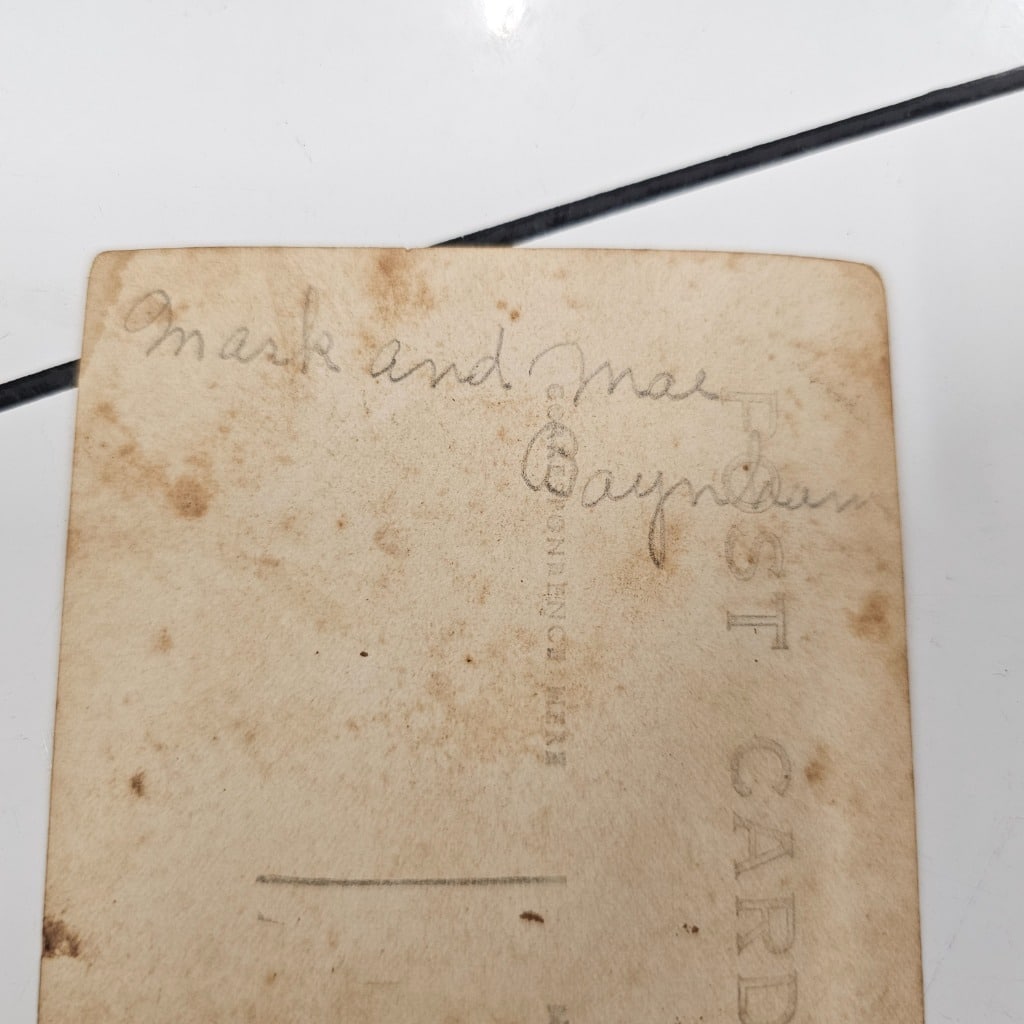 Mark and Mae
CORRESPONDENCE HERE
POST CARD